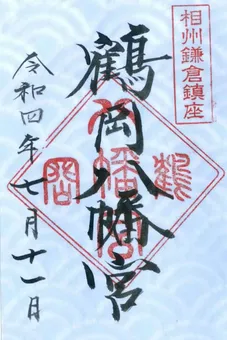 相州鎌倉鎮座
鶴岡八幡宮
令和四年七月十一日